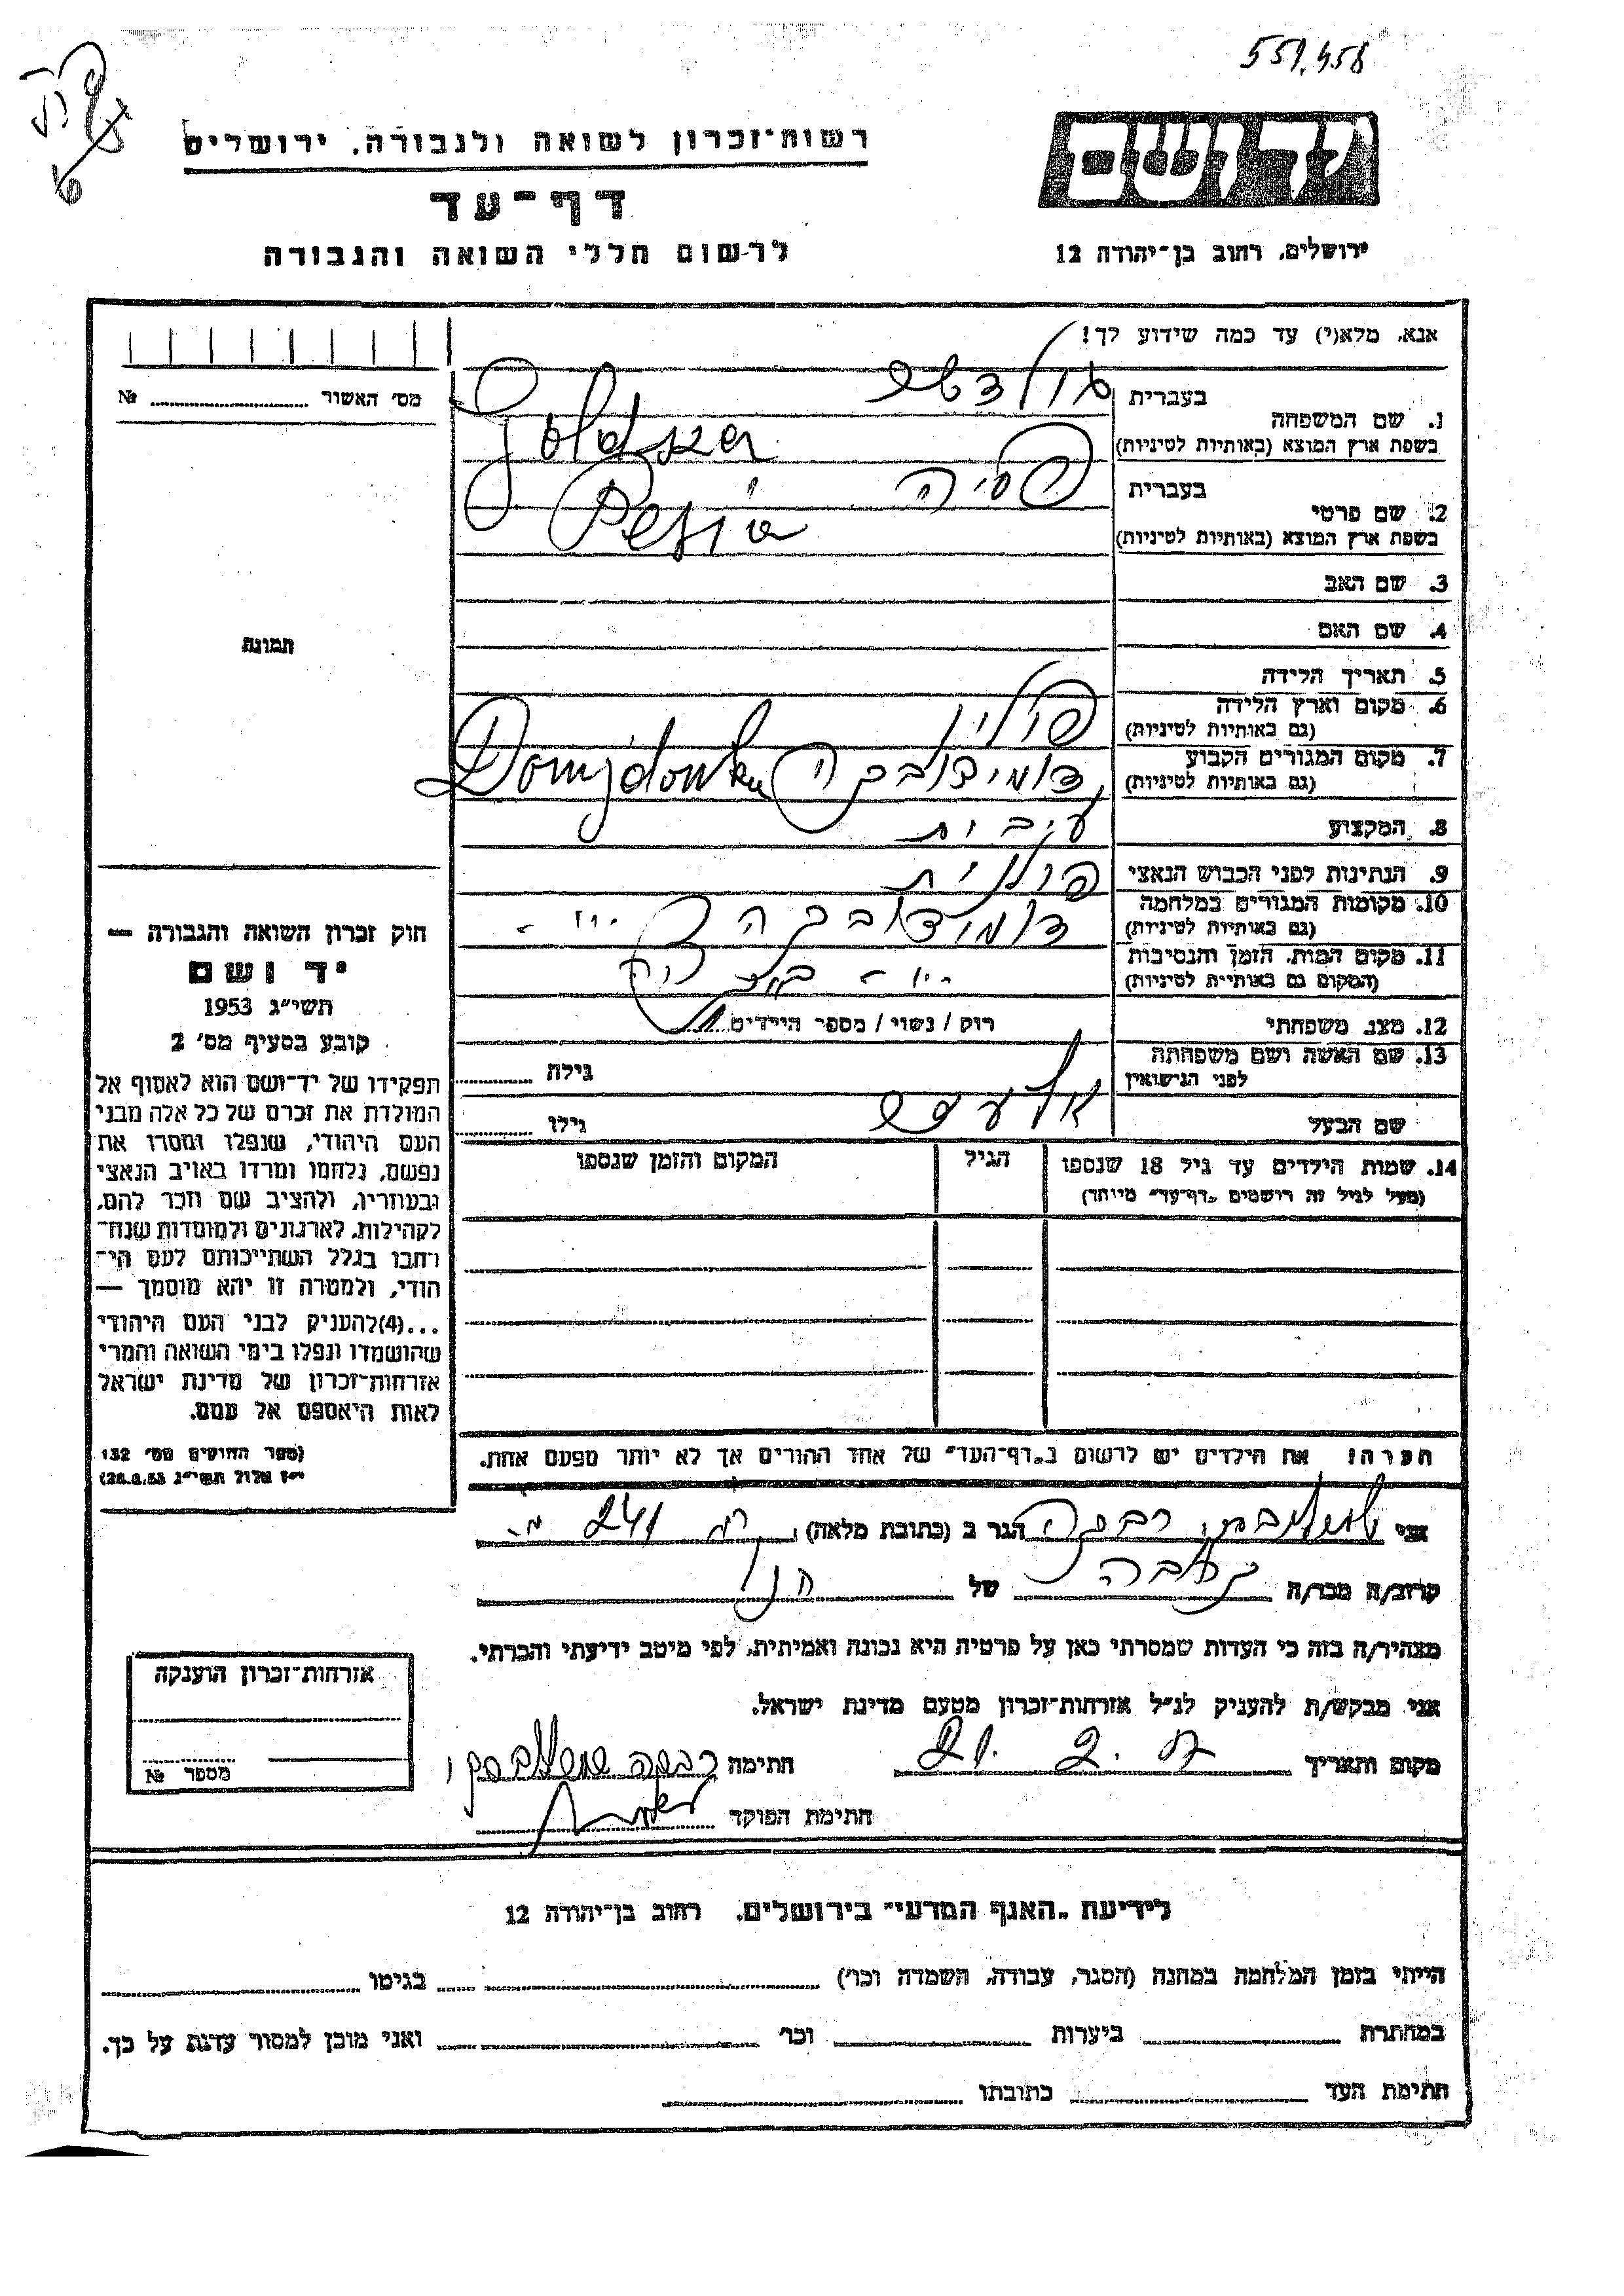 559,458
רשות־זכרון לשואה ולגבורה, ירושלים
דף־עד
לרשום חללי השואה והגבורה
ירושלים, רחוב בן־יהודה 12
אנא, מלא(י) עד כמה שידוע לך!
מס' האשור № 
1. שם המשפחה
בעברית
בשפת ארץ המוצא (באותיות לטיניות)
Goldszer
2. שם פרטי
בעברית פסיה
בשפת ארץ המוצא (באותיות לטיניות) Pesia
3. שם האב
4. שם האם
תמונה
5. תאריך הלידה
6. מקום וארץ הלידה פולין
(גם באותיות לטיניות)
7. מקום המגורים הקבוע דומידובקה Domidowka
(גם באותיות לטיניות)
8. המקצוע
9. הנתינות לפני הכבוש הנאצי פולנית
10. מקומות המגורים במלחמה דומידובקה
(גם באותיות לטיניות)
11. מקום המות, הזמן והנסיבות
(המקום גם באותיות לטיניות)
12. מצב משפחתי רוק / נשוי / מספר הילדים
13. שם האשה ושם משפחתה גילה
לפני הנישואין
שם הבעל גילו
14. שמות הילדים עד גיל 18 שנספו הגיל המקום והזמן שנספו
(מעל לגיל זה רושמים „דף־עד" מיוחד)
חוק זכרון השואה והגבורה —
יד ושם
תשי״ג 1953
קובע בסעיף מס' 2
תפקידו של יד־ושם הוא לאסוף אל
המולדת את זכרם של כל אלה מבני
העם היהודי, שנפלו ומסרו את
נפשם, נלחמו ומרדו באויב הנאצי
ובעוזריו, ולהציב שם וזכר להם,
לקהילות, לארגונים ולמוסדות שנח־
רחבו בגלל השתייכותם לעם הי־
הודי, ולמטרה זו יהא מוסמך —
...(4)להעניק לבני העם היהודי
שהושמדו ונפלו בימי השואה והמרי
אזרחות־זכרון של מדינת ישראל
לאות היאספם אל עמם.
(ספר החוקים מס' 132
י״ז אלול תשי״ג 28.8.53)
הערה! את הילדים יש לרשום ב„דף־העד" של אחד ההורים אך לא יותר מפעם אחת.
אני רבקה הגר ב (כתובת מלאה) 241
קרוב/ה מכר/ה של
מצהיר/ה בזה כי העדות שמסרתי כאן על פרטיה היא נכונה ואמיתית, לפי מיטב ידיעתי והכרתי.
אני מבקש/ת להעניק לנ״ל אזרחות־זכרון מטעם מדינת ישראל.
מקום ותאריך 21. 2. 57 חתימה רבקה
חתימת הפוקד
אזרחות־זכרון הוענקה
מספר №
לידיעת „האגף המדעי" בירושלים, רחוב בן־יהודה 12
הייתי בזמן המלחמה במחנה (הסגר, עבודה, השמדה וכו') בגיטו
במחתרת ביערות וכו' ואני מוכן למסור עדות על כך.
חתימת העד כתובתו